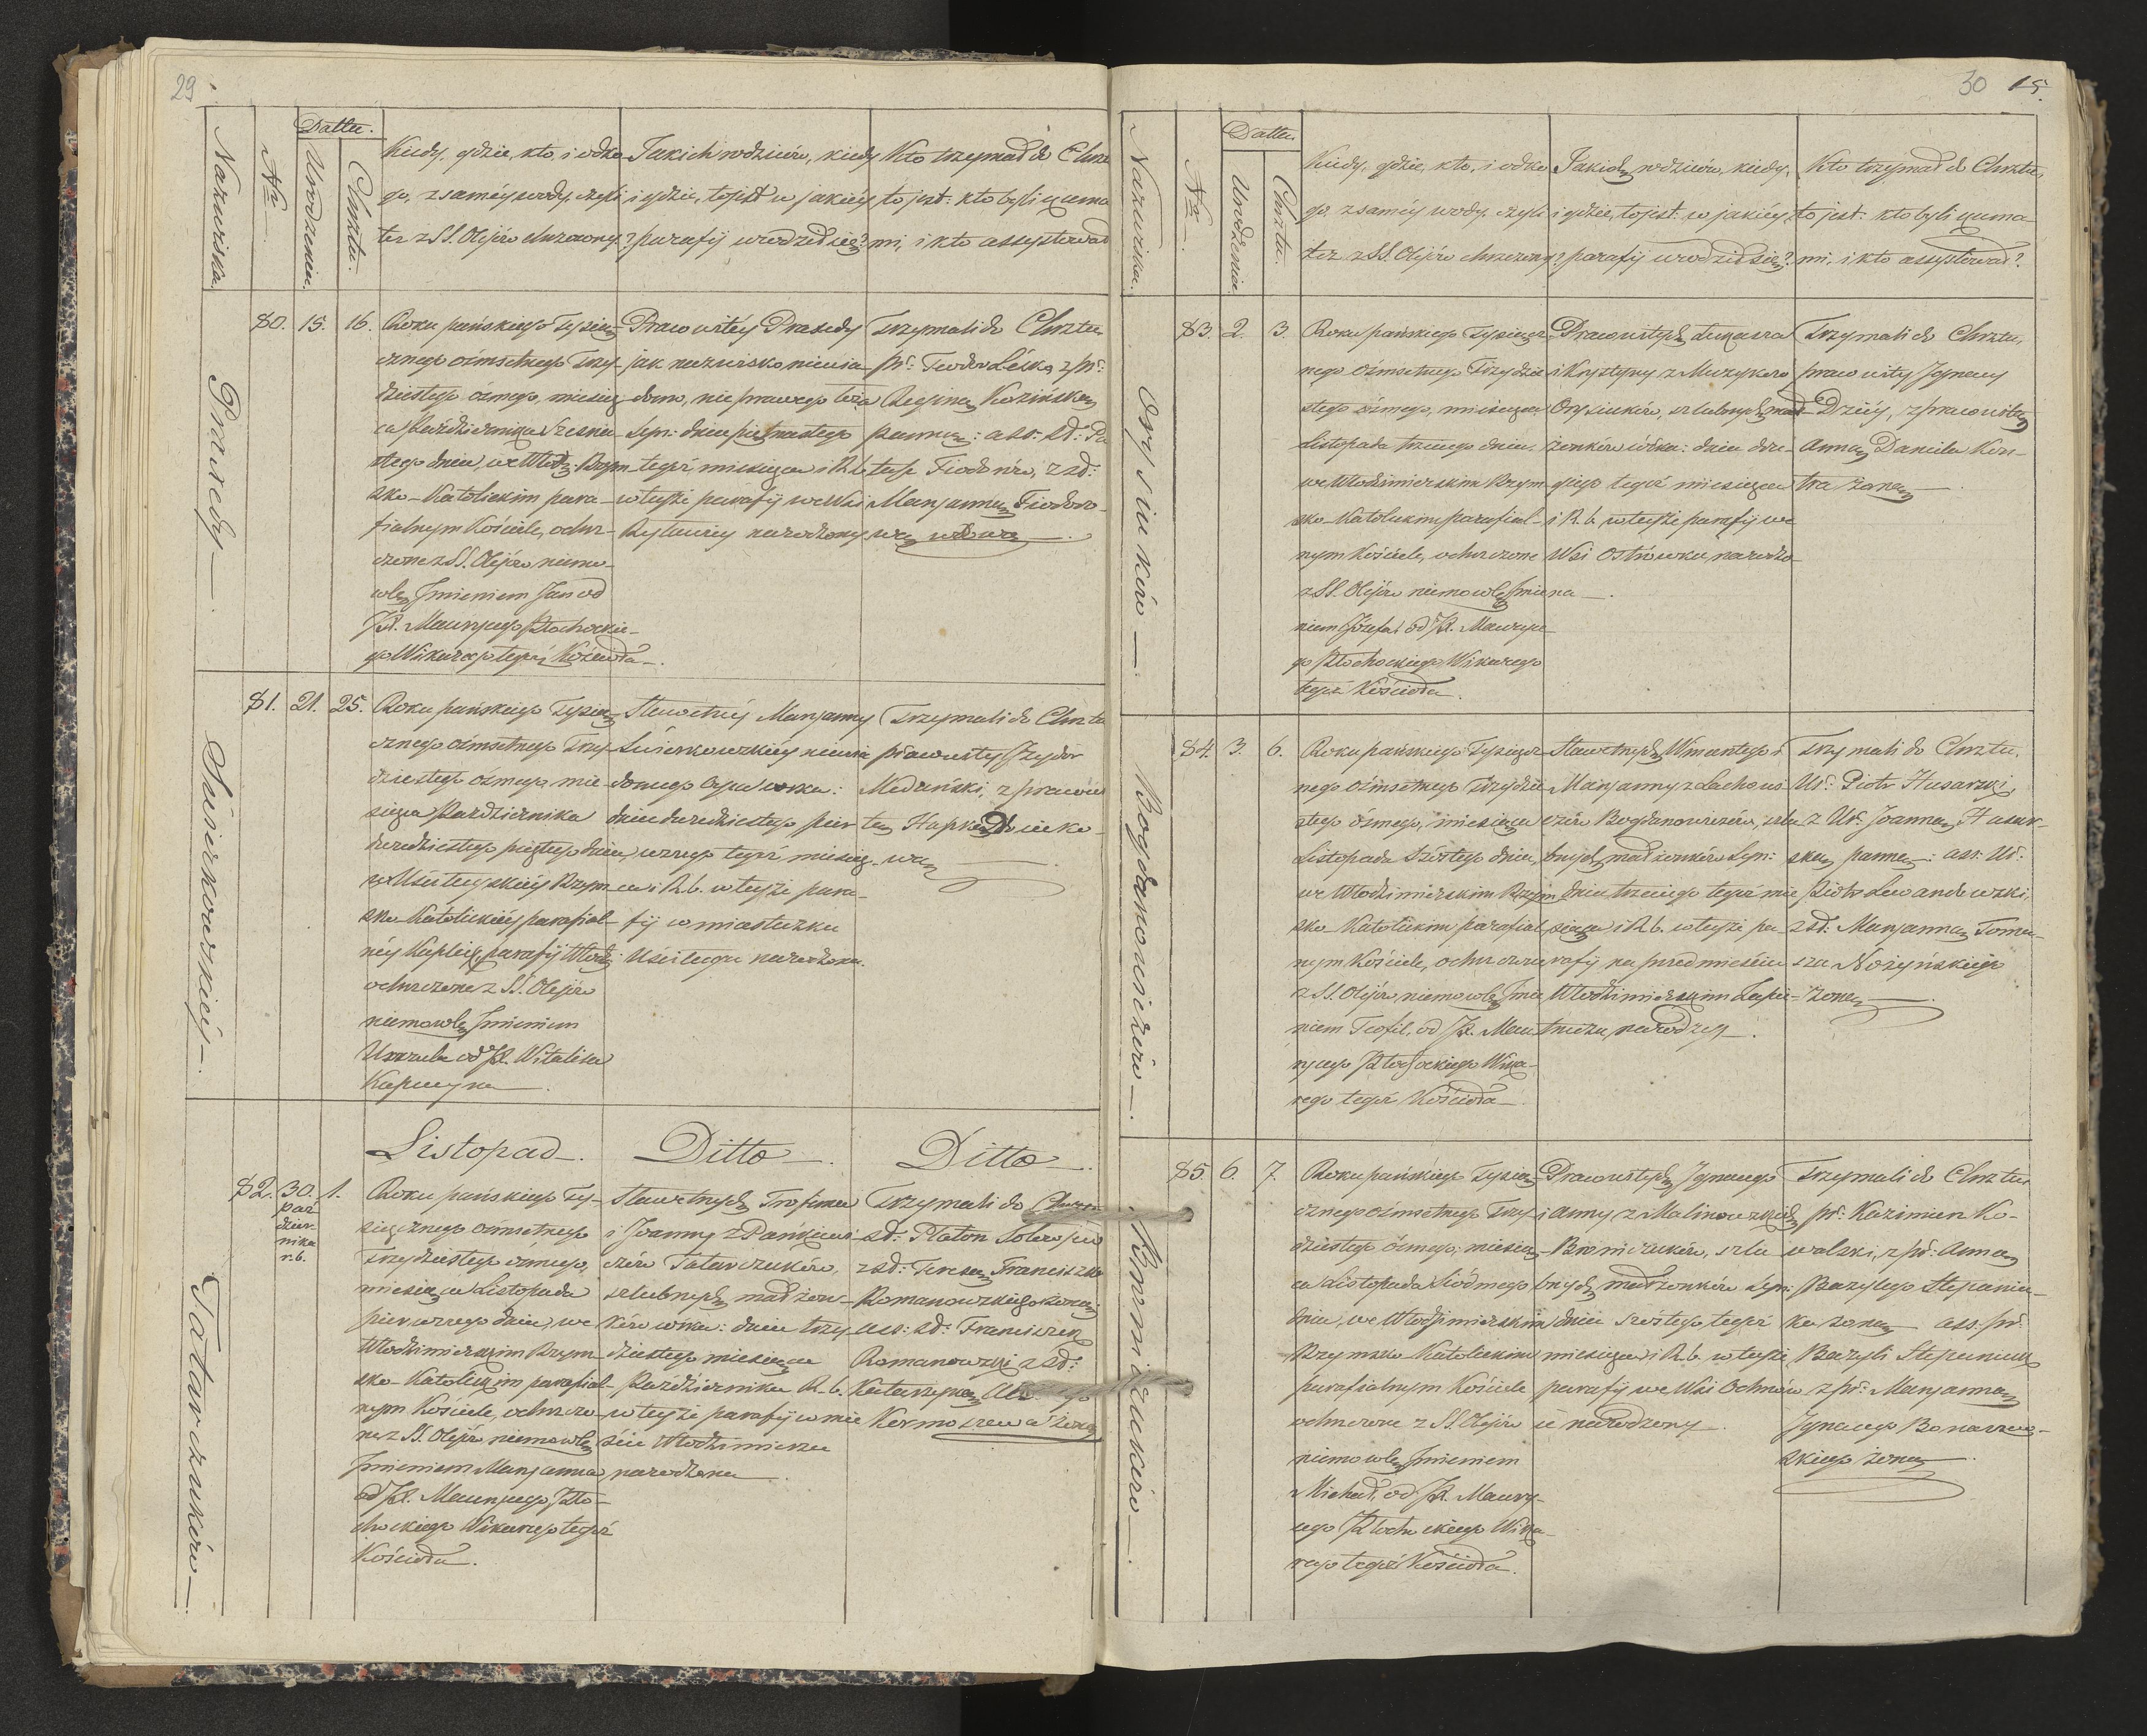 29
Datta.
Nazwiska.
№
Urodzenia.
Chrztu.
Kiedy, gdzie, kto, i odko-
go, z saméj wody, czyli
też z SS. Olejów chrzczony?
Jakich rodziców, kiedy
i gdzie, to jest w jakiéj
parafij urodził się?
Kto trzymał do Chrz
to jest: kto byli kuma
mi, i kto assystował
Praxedy
80. 15. 16.
Roku pańskiego Tysią-
cznego ośmsetnego Trzy-
dziestego ósmego, miesią-
ca Października Szesna-
stego dnia, we Włodz: Rzym-
sko-Katolickim para-
fialnym Kościele, ochrz-
czone z SS. Olejów niemo-
wlę Imieniem Jan od
JX. Maurycego Płochockie-
go Wikarego tegoż Kościoła.
Prawowitéj Praxedy
jak nazwisko niewia-
domo, nieprawego łoża
Syn: dnia piętnastego
tegoż miesiąca i R. b.
w tejże parafij we Wsi
narodzony
Trzymali do Chrztu
pr: Teodor Leśko z pr:
Reginą Kozińską
panną: ass: sł: Pa
Fiodorów, z sł:
Marjanną Fiodoro-
wą wdową
Susierkowskiéj
81. 21. 25.
Roku pańskiego Tysią-
cznego ośmsetnego Trzy-
dziestego ósmego mie-
siąca Października
dwudziestego piątego dnia,
w Uściługskiéj Rzym-
sko-Katolickiéj parafial-
néj Kaplicy, parafij Włodz:
ochrzczone z SS. Olejów
niemowlę Imieniem
Urszula od JX. Witalisa
Kapucyna
Sławetnéj Marjanny
Susierkowskiéj niewia-
domego Ojca córka:
dnia dwudziestego pier-
wszego tegoż miesią-
ca i R. b. w tejże para-
fij w miasteczku
Uściługu narodzona.
Trzymali do Chrztu
prawowity Izydor
Medyński, z prawowi
tą
Listopad. Ditto. Ditto.
Tatarczuków
82. 30. 1.
paź
dzier-
nika
r. b.
Roku pańskiego Ty-
siącznego ośmsetnego
Trzydziestego ósmego,
miesiąca Listopada
pierwszego dnia, we
Włodzimierskim Rzym-
sko-Katolickim parafial-
nym Kościele, ochrzczo-
ne z SS. Olejów niemowlę
Imieniem Marjanna,
od JX. Maurycego Pło-
chockiego Wikarego tegoż
Kościoła.
Sławetnych Trofima
i Joanny z Pańkiewi-
czów Tatarczuków,
szlubnych małżon-
ków córka: dnia trzy-
dziestego miesiąca
Października R. b.
w tejże parafij w mie-
ście Włodzimierzu
narodzona
Trzymali do Chrztu
sł: Platon
z sł: Teresą Franciszka
Romanowskiego żoną:
ass: sł: Franciszek
Romanowski z sł:
Katarzyną
żoną
30 15.
Datta.
Nazwiska.
№
Urodzenia.
Chrztu.
Kiedy, gdzie, kto, i odko-
go, z saméj wody, czyli
też z SS. Olejów chrzczony?
Jakich rodziców, kiedy,
i gdzie, to jest: w jakiéj
parafij urodził się?
Kto trzymał do Chrztu,
to jest: kto byli kuma-
mi, i kto assystował?
Orysiuków
83. 2. 3.
Roku pańskiego Tysiącz-
nego Ośmsetnego Trzydzie-
stego ósmego, miesiąca
Listopada trzeciego dnia,
we Włodzimierskim Rzym-
sko-Katolickim parafial-
nym Kościele, ochrzczone
z SS. Olejów niemowlę Imie-
niem Józefa, od JX. Mauryce-
go Płochockiego Wikarego
tegoż Kościoła.
Prawowitych Łukasza
i Krystyny z Muzyków
Orysiuków, szlubnych mał-
żonków córka: dnia dru-
giego tegoż miesiąca
i R. b. w tejże parafij we
Wsi Ostrówku, narodzo-
na.
Trzymali do Chrztu,
prawowity Ignacy
Dziéy, z prawowitą
Anną Daniela Kon-
tra żoną.
Bogdanowiczów
84. 3. 6.
Roku pańskiego Tysiącz-
nego Ośmsetnego Trzydzie-
stego ósmego, miesiąca
Listopada Szóstego dnia,
we Włodzimierskim Rzym-
sko-Katolickim parafial-
nym Kościele, ochrzczone
z SS. Olejów niemowlę Imie-
niem Teofil, od JX. Mau-
rycego Płochockiego Wika-
rego tegoż Kościoła
Sławetnych Wincentego i
Marjanny z Lachowi-
czów Bogdanowiczów, szlu-
bnych małżonków Syn:
dnia trzeciego tegoż mie-
siąca i R. b. w tejże pa-
rafij na przedmieściu
Włodzimierskim
narodzony.
Trzymali do Chrztu,
Ur: Piotr Husarski,
z Ur: Joanną Husar-
ską panną: ass: Ur:
Piotr Lewandowski,
z sł: Marjanną Toma-
sza Nożyńskiego
żoną
Broniczuków
85. 6. 7.
Roku pańskiego Tysią-
cznego ośmsetnego Trzy-
dziestego ósmego, miesią-
ca Listopada Siódmego
dnia, we Włodzimierskim
Rzymsko Katolickim
parafialnym Kościele
ochrzczone z SS. Olejów
niemowlę Imieniem
Michał, od JX. Maury-
cego Płochockiego Wika-
rego tegoż Kościoła.
Prawowitych Ignacego
i Anny z Malinowskich
Broniczuków, szlu-
bnych małżonków Syn:
dnia szóstego tegoż
miesiąca i R. b. w tejże
parafij we Wsi Ochnów-
ce narodzony.
Trzymali do Chrztu
pr: Kazimierz Ko-
walski, z pr: Anną
Bazylego Stepaniu-
ka żoną ass: pr:
Bazyli Stepaniuk
z pr: Marjanną
Ignacego
skiego żoną